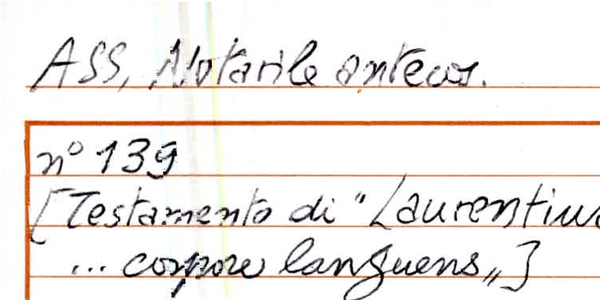 ASS, Notarile antecos.
n° 139
[Testamento di "Laurentius
... corpore languens„]